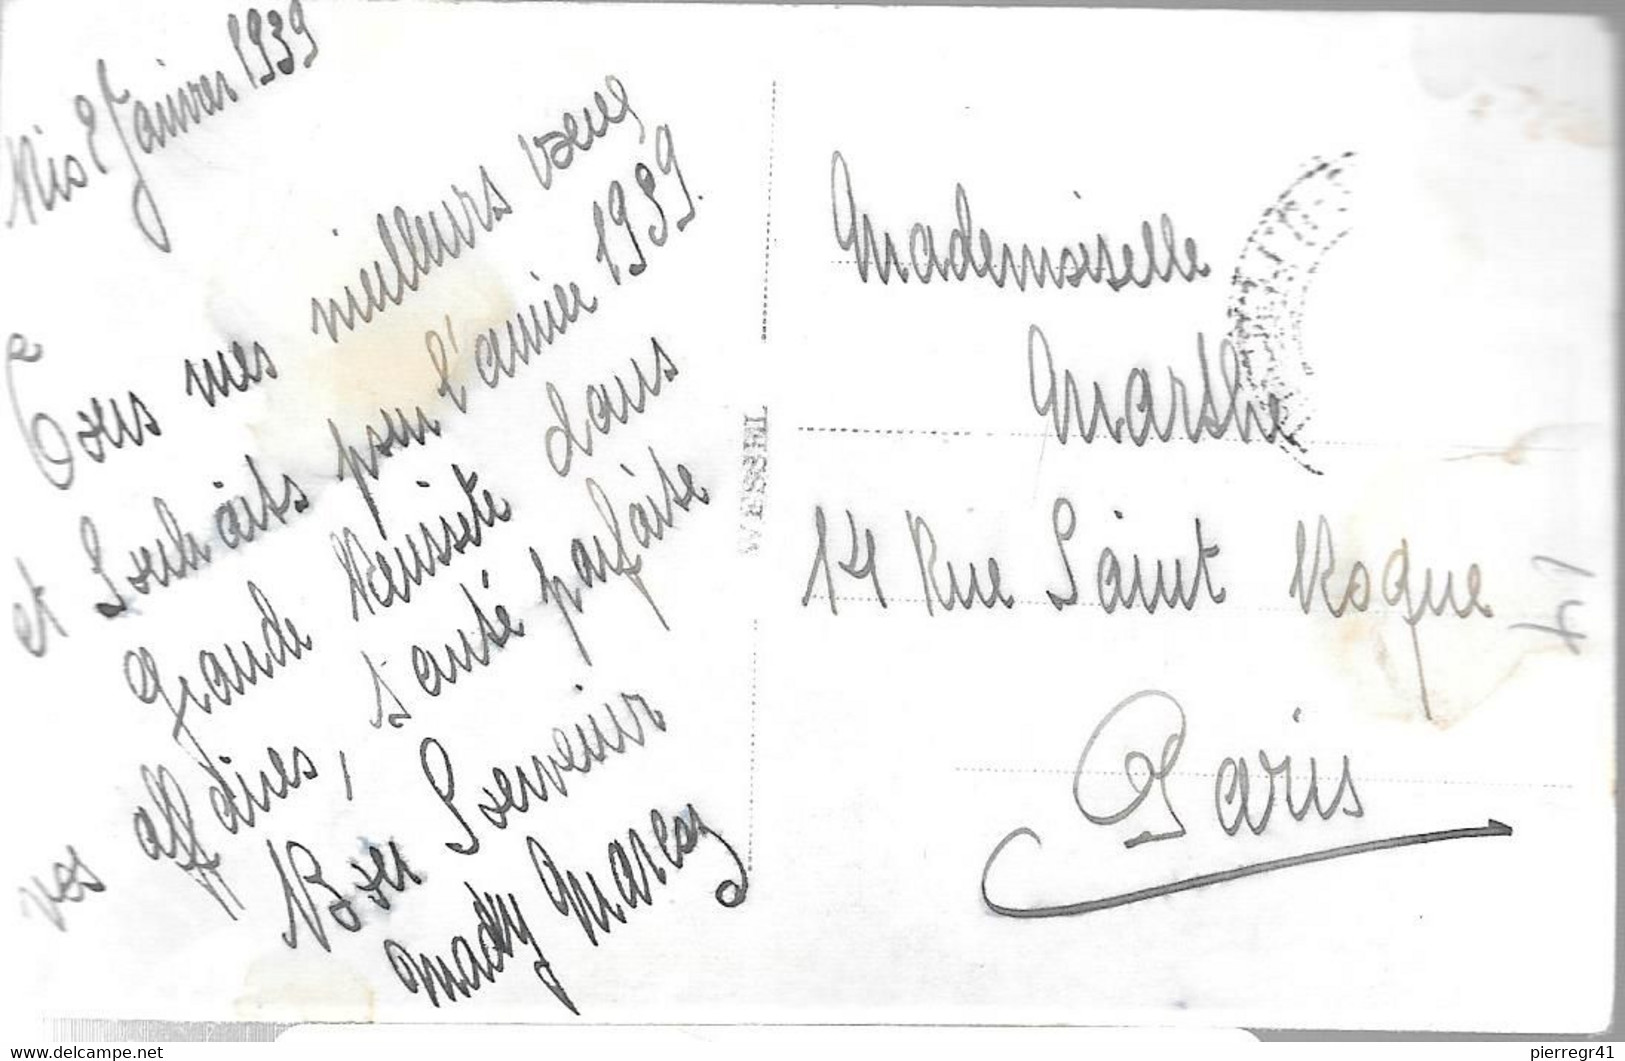 2 Janvier 1939
Tous mes meilleurs voeux
et Souhaits pour l'année 1939.
Grande Réussite dans
vos affaires, santé parfaite
Bon Souvenir
Mady
Mademoiselle
Marthe
14 Rue Saint Roque
Paris
41
pierregr41